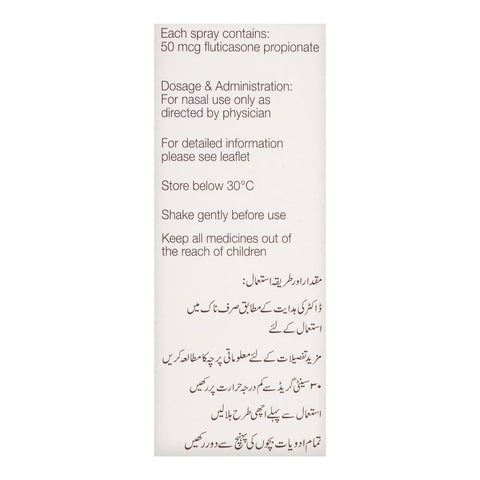 Each spray contains:
50 mcg fluticasone propionate
Dosage & Administration:
For nasal use only as
directed by physician
For detailed information
please see leaflet
Store below 30°C
Shake gently before use
Keep all medicines out of
the reach of children
مقدار اور طریقہ استعمال:
ڈاکٹر کی ہدایت کے مطابق صرف ناک میں
استعمال کے لئے
مزید تفصیلات کے لئے معلوماتی پرچہ کا مطالعہ کریں
۳۰ سینٹی گریڈ سے کم درجہ حرارت پر رکھیں
استعمال سے پہلے اچھی طرح ہلا لیں
تمام ادویات بچوں کی پہنچ سے دور رکھیں